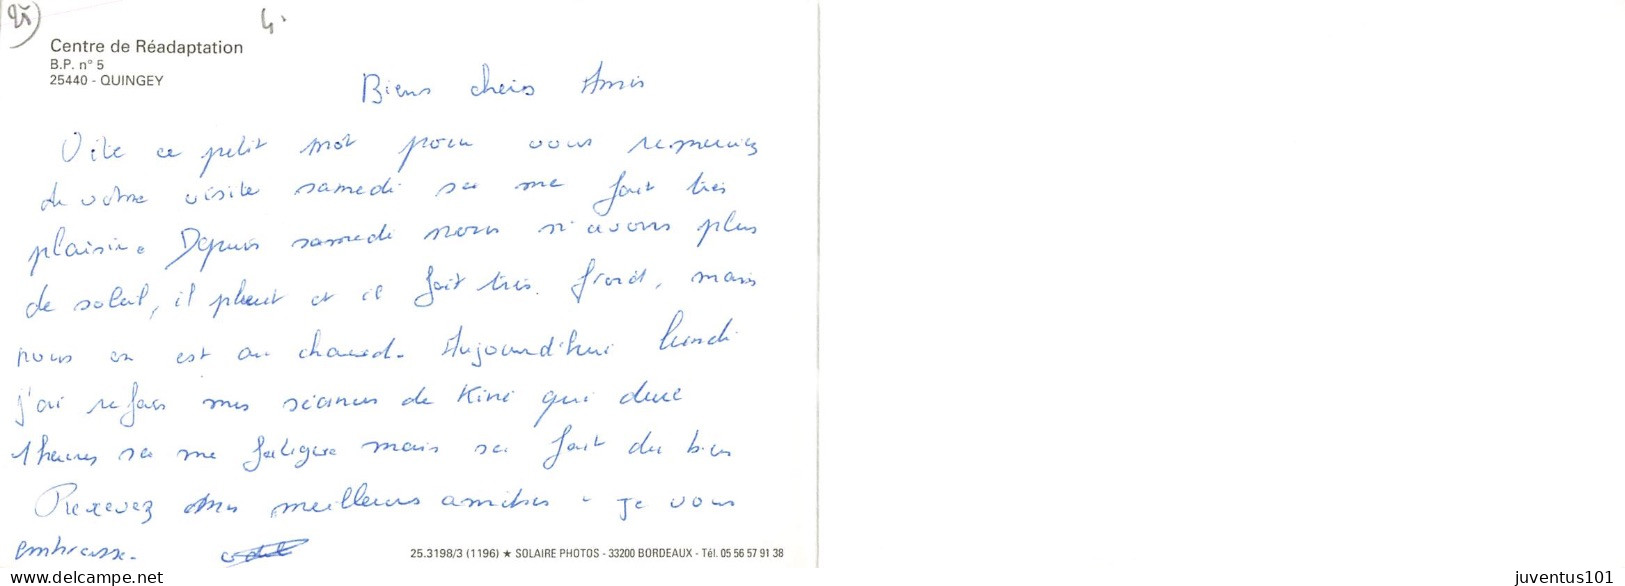 25
4.
Centre de Réadaptation
B.P. n° 5
25440 - QUINGEY
Biens cheis Amis
Vite ce petit mot pour vous remerciez
de votre visite samedi sa me fait tres
plaisir. Depuis samedi nous n'avons plus
de soleil, il pleut et il fait tres froid, mais
nous on est au chaud. Aujourd'hui lundi
j'ai refais mes séances de Kiné qui dure
1 heures sa me fatigue mais sa fait du bien
Recevez mes meilleurs amities - Je vous
embrasse.
25.3198/3 (1196) ★ SOLAIRE PHOTOS - 33200 BORDEAUX - Tél. 05 56 57 91 38
delcampe.net
juventus101